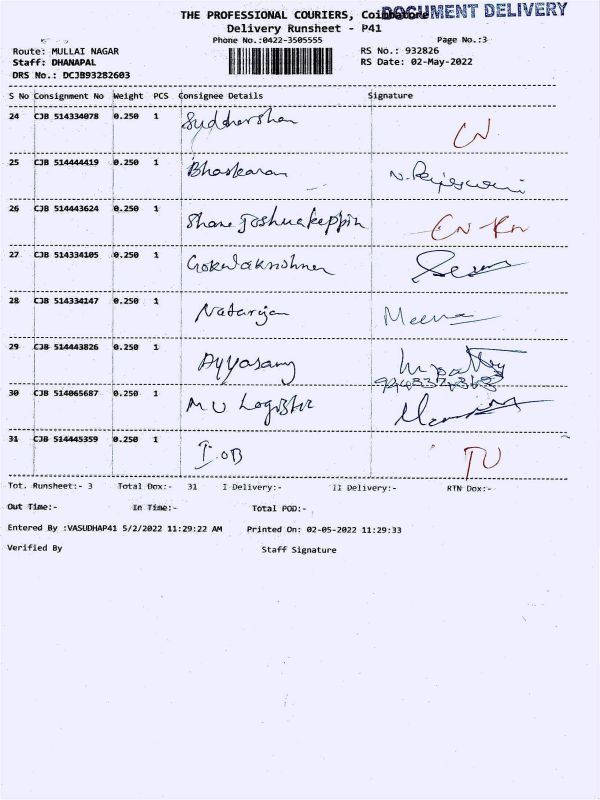 THE PROFESSIONAL COURIERS, Coimbatore
DOCUMENT DELIVERY
Delivery Runsheet - P41
Phone No.:0422-3505555 Page No.:3
Route: MULLAI NAGAR RS No.: 932826
Staff: DHANAPAL RS Date: 02-May-2022
DRS No.: DCJB93282603
S No Consignment No Weight PCS Consignee Details Signature
24 CJB 514334078 0.250 1 Suddharshan CN
25 CJB 514444419 0.250 1 Bhaskaran N. Rajeswari
26 CJB 514443624 0.250 1 Shane Joshua keppin CN
27 CJB 514334105 0.250 1 Gokulakrishnan
28 CJB 514334147 0.250 1 Natarajan Meena
29 CJB 514443826 0.250 1 Ayyasamy
30 CJB 514065687 0.250 1 MU Logistic
31 CJB 514445359 0.250 1 I.OB TU
Tot. Runsheet:- 3 Total Dox:- 31 I Delivery:- II Delivery:- RTN Dox:-
Out Time:- In Time:- Total POD:-
Entered By :VASUDHAP41 5/2/2022 11:29:22 AM Printed On: 02-05-2022 11:29:33
Verified By Staff Signature